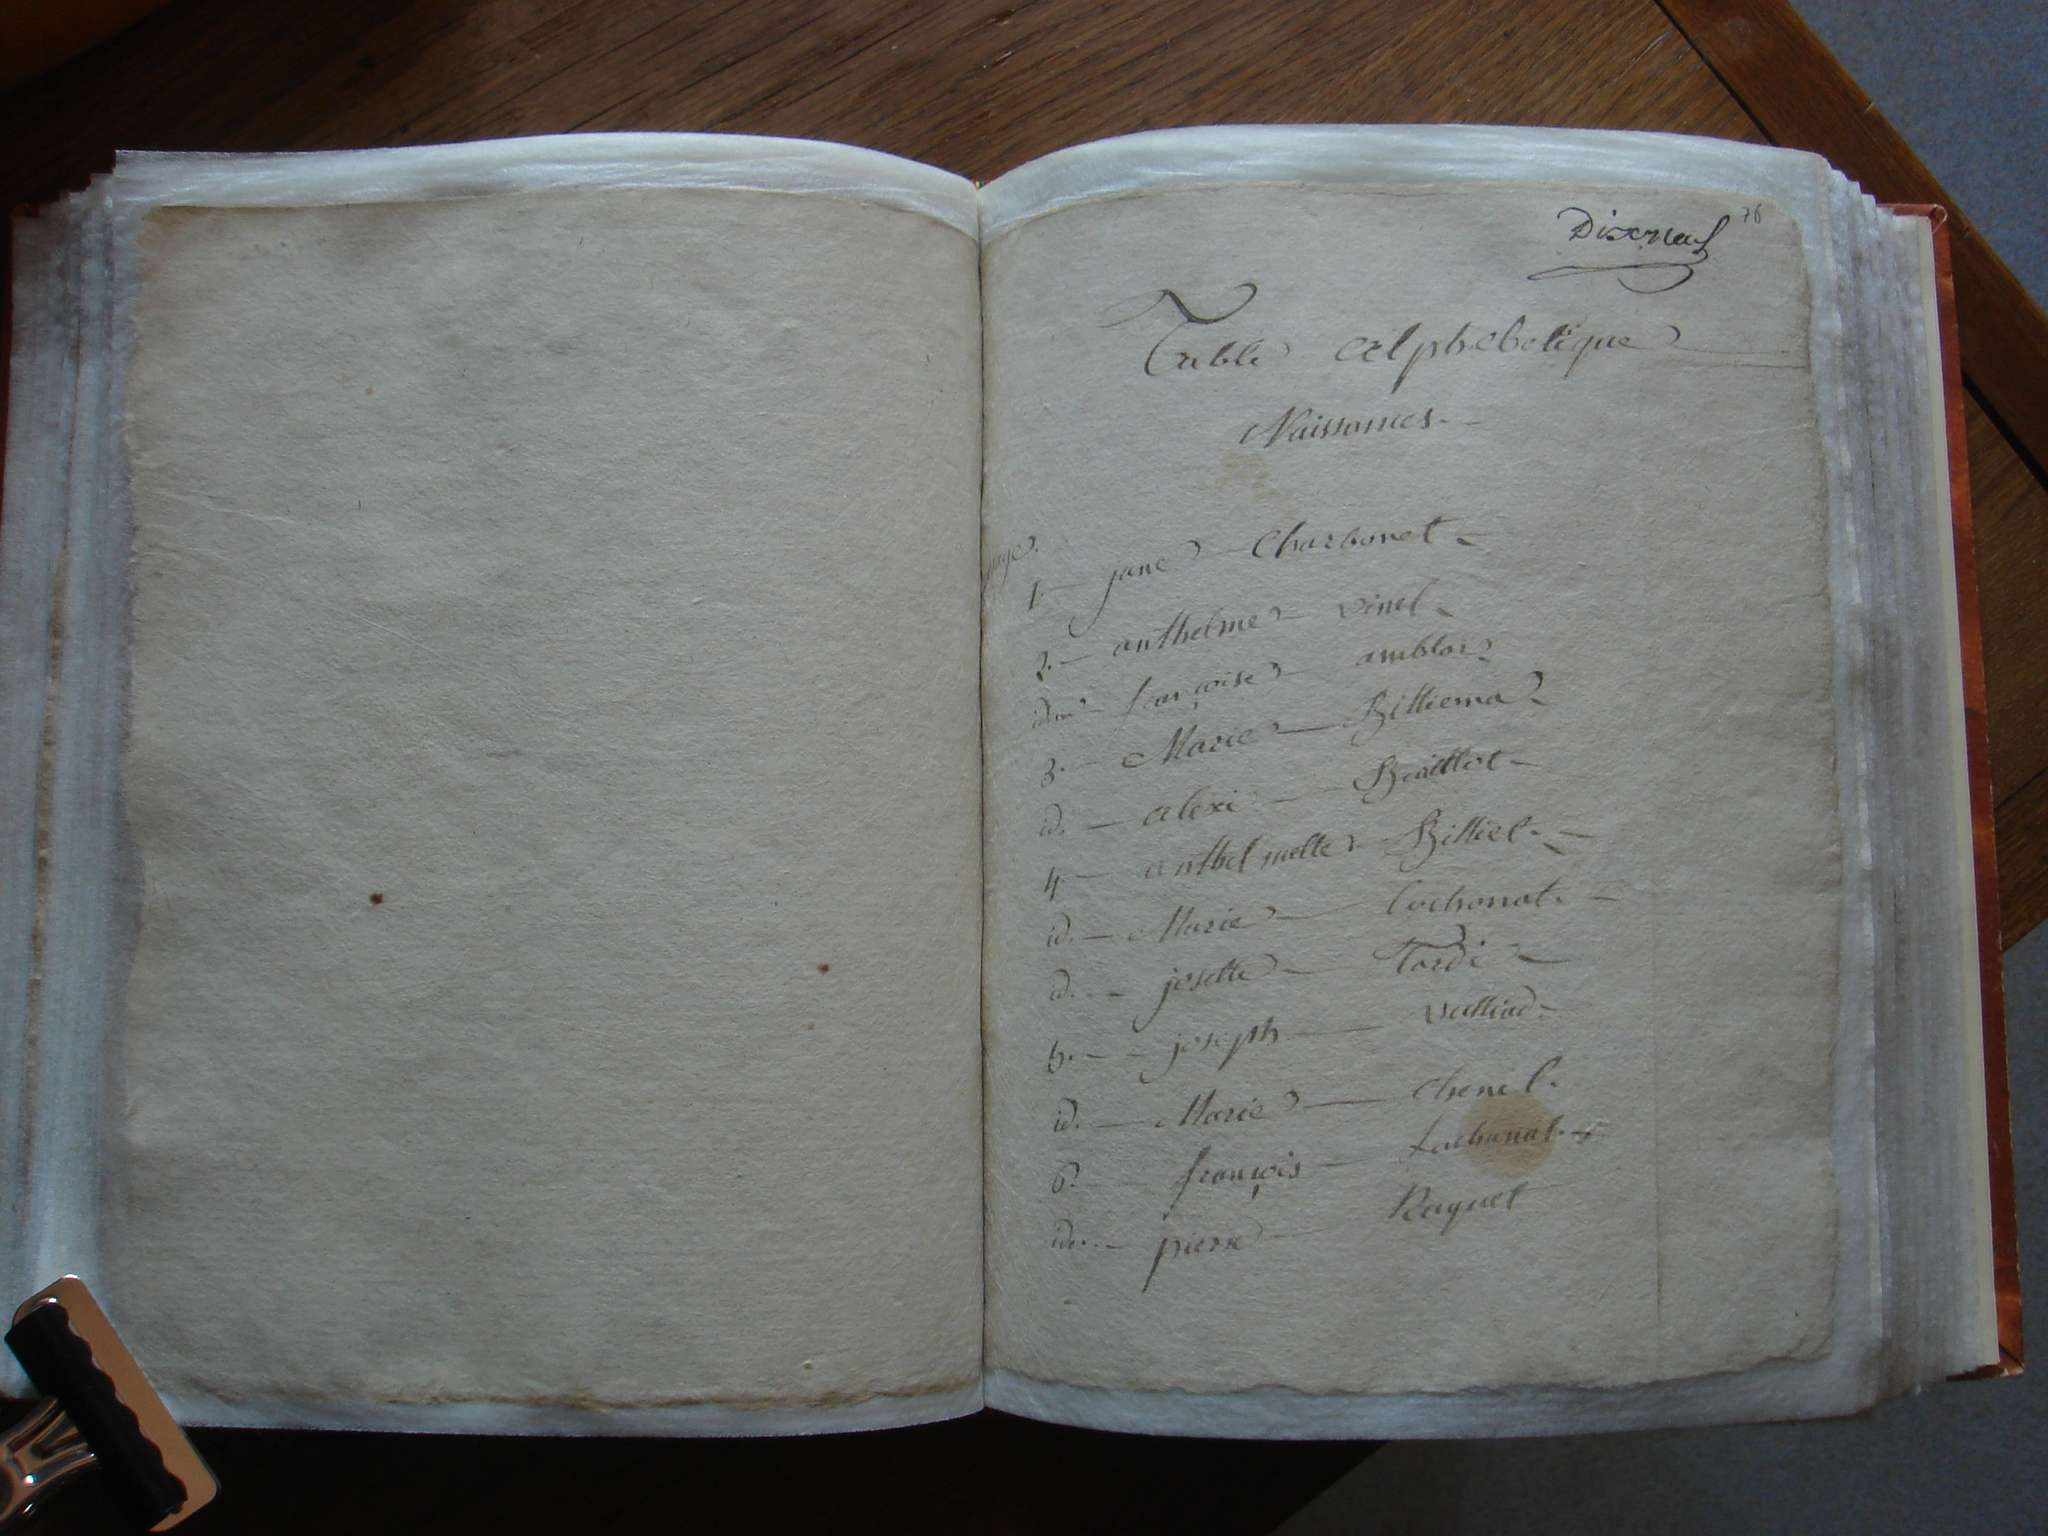 Dixneuf 76
Table alphebetique
Naissances.
page.
1. jane Charbonet
2. anthelme vinel
idm françoise amblar
3. Marie Billiema
id. alexi Bouillot
4 anthelmette Billiel.
id. Marie Cochonat.
id. josette Tardi
5. joseph valliod.
id. Marie Chenel.
6. françois Lachonat.
id. pierre Raquet